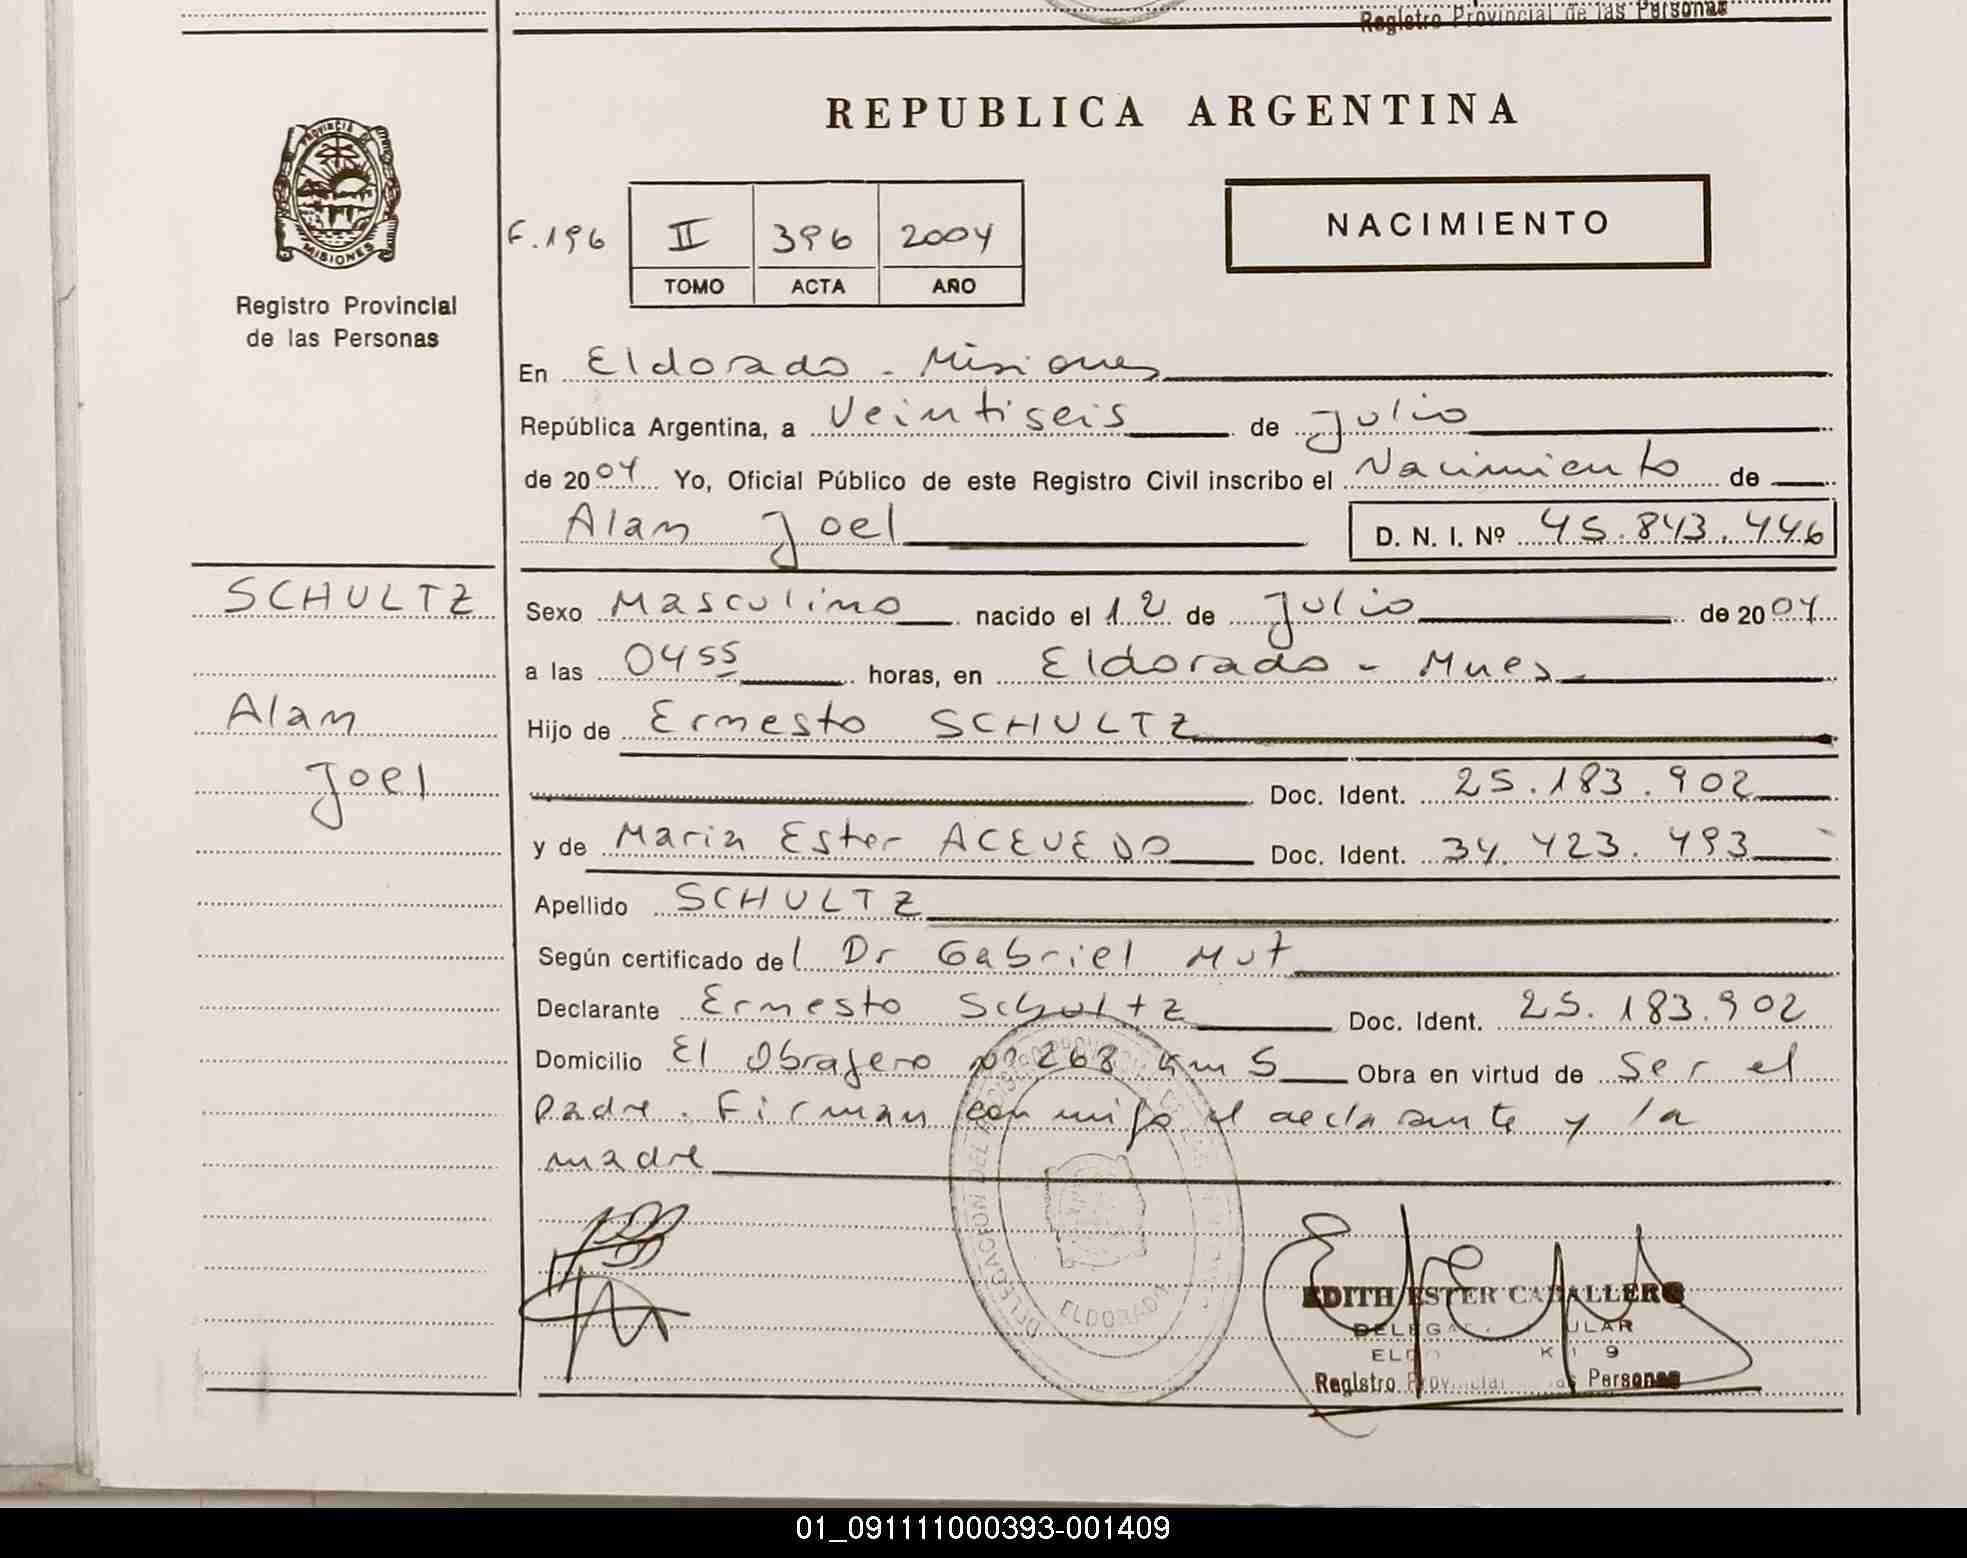 Registro Provincial de las Personas
REPUBLICA ARGENTINA
PROVINCIA DE
MISIONES
Registro Provincial
de las Personas
F. 196
II 396 2004
TOMO ACTA AÑO
NACIMIENTO
En Eldorado - Misiones
República Argentina, a Veintiseis de Julio
de 2004 Yo, Oficial Público de este Registro Civil inscribo el Nacimiento de
Alan Joel D. N. I. Nº 45.843.446
SCHULTZ
Alan
Joel
Sexo Masculino nacido el 12 de Julio de 2004
a las 0455 horas, en Eldorado - Mnes
Hijo de Ernesto SCHULTZ
Doc. Ident. 25.183.902
y de Maria Ester ACEVEDO Doc. Ident. 34.423.493
Apellido SCHULTZ
Según certificado del Dr Gabriel Mut
Declarante Ernesto Schultz Doc. Ident. 25.183.902
Domicilio El Obrajero Nº 268 Km 5 Obra en virtud de Ser el
padre. Firman conmigo el declarante y la
madre
DELEGACION DEL
ELDORADO
EDITH ESTER CABALLERO
Registro Provincial de las Personas
01_091111000393-001409